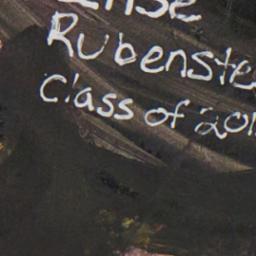 Rubenste
Class of 201